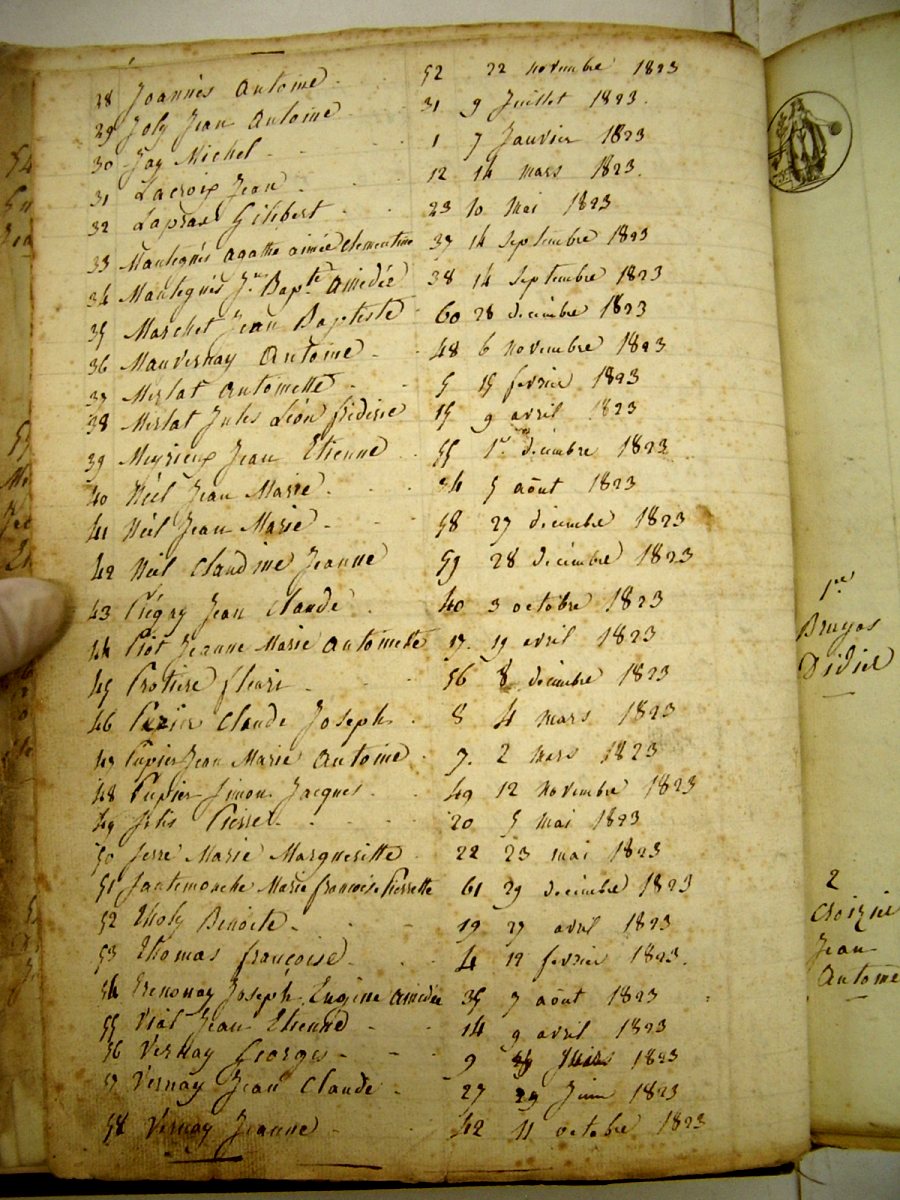 28 Joannès Antoine 52 22 novembre 1823
29 Joly Jean Antoine 31 9 Juillet 1823.
30 Jay Michel 1 7 Janvier 1823
31 Lacroix Jean 12 14 mars 1823.
32 Lapras Gilibert 23 10 Mai 1823
33 Mantegnés Agathe aimée Clementine 37 14 Septembre 1823
34 Mantegnés Jn Bapte Amédée 38 14 Septembre 1823
35 Marchet Jean Baptiste 60 28 decembre 1823
36 Mauvernay Antoine 48 6 Novembre 1823
37 Merlat Antoinette 5 15 fevrier 1823
38 Merlat Jules Léon fréderic 15 9 avril 1823
39 Meyrieux Jean Etienne 55 1er decembre 1823
40 Néel Jean Marie 34 5 août 1823
41 Néel Jean Marie 58 27 decembre 1823
42 Néel Claudine Jeanne 59 28 decembre 1823
43 Prégny Jean Claude 40 3 octobre 1823
44 Piot Jeanne Marie Antoinette 17. 19 avril 1823
45 Protiere fleuri 56 8 decembre 1823
46 Claude Joseph 8 4 mars 1823
47 Pupier Jean Marie Antoine 7. 2 mars 1823
48 Pupier Simon Jacques 49 12 Novembre 1823
49 Pierre 20 5 mai 1823
50 Serre Marie Margueritte 22 23 mai 1823
51 Marie françoise Pierrette 61 29 decembre 1823
52 Tholy Benoîte 19 27 avril 1823
53 Thomas françoise 4 12 fevrier 1823.
54 Joseph Eugène Amédée 35 7 août 1823
55 Vial Jean Etienne 14 9 avril 1823
56 Vernay Georges 9 1823
57 Vernay Jean Claude 27 29 Juin 1823
58 Vernay Jeanne 42 11 octobre 1823
1re
Bruyas
Didier
2
Croizier
Jean
Antoine